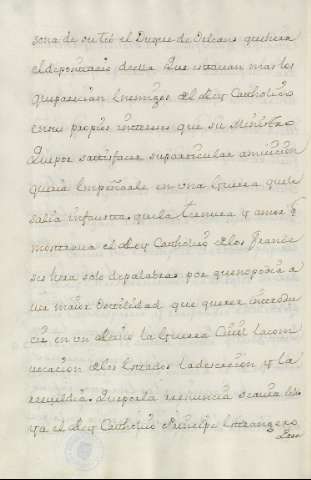 sona de su tio el Duque de Orleans que hera
el depositario della. Que estavan mas los
que parecian Enemigos del Rey Catholico
en sus propios intereses que su Ministro
Que por satisfacer su particular ambicion
queria Empeñarle en una Guerra que le
salia infausta, que la ternura y amor
mostrava el Rey Catholico a los France
ses hera solo de palabras, por que no podia a
ver maior hostilidad que querer introdu
cir en un Reino la Guerra Civil la com
vocacion de los Estados la desercion y la
reveldia. Que por la renuncia
ya el Rey Catholico Principe Estrangero